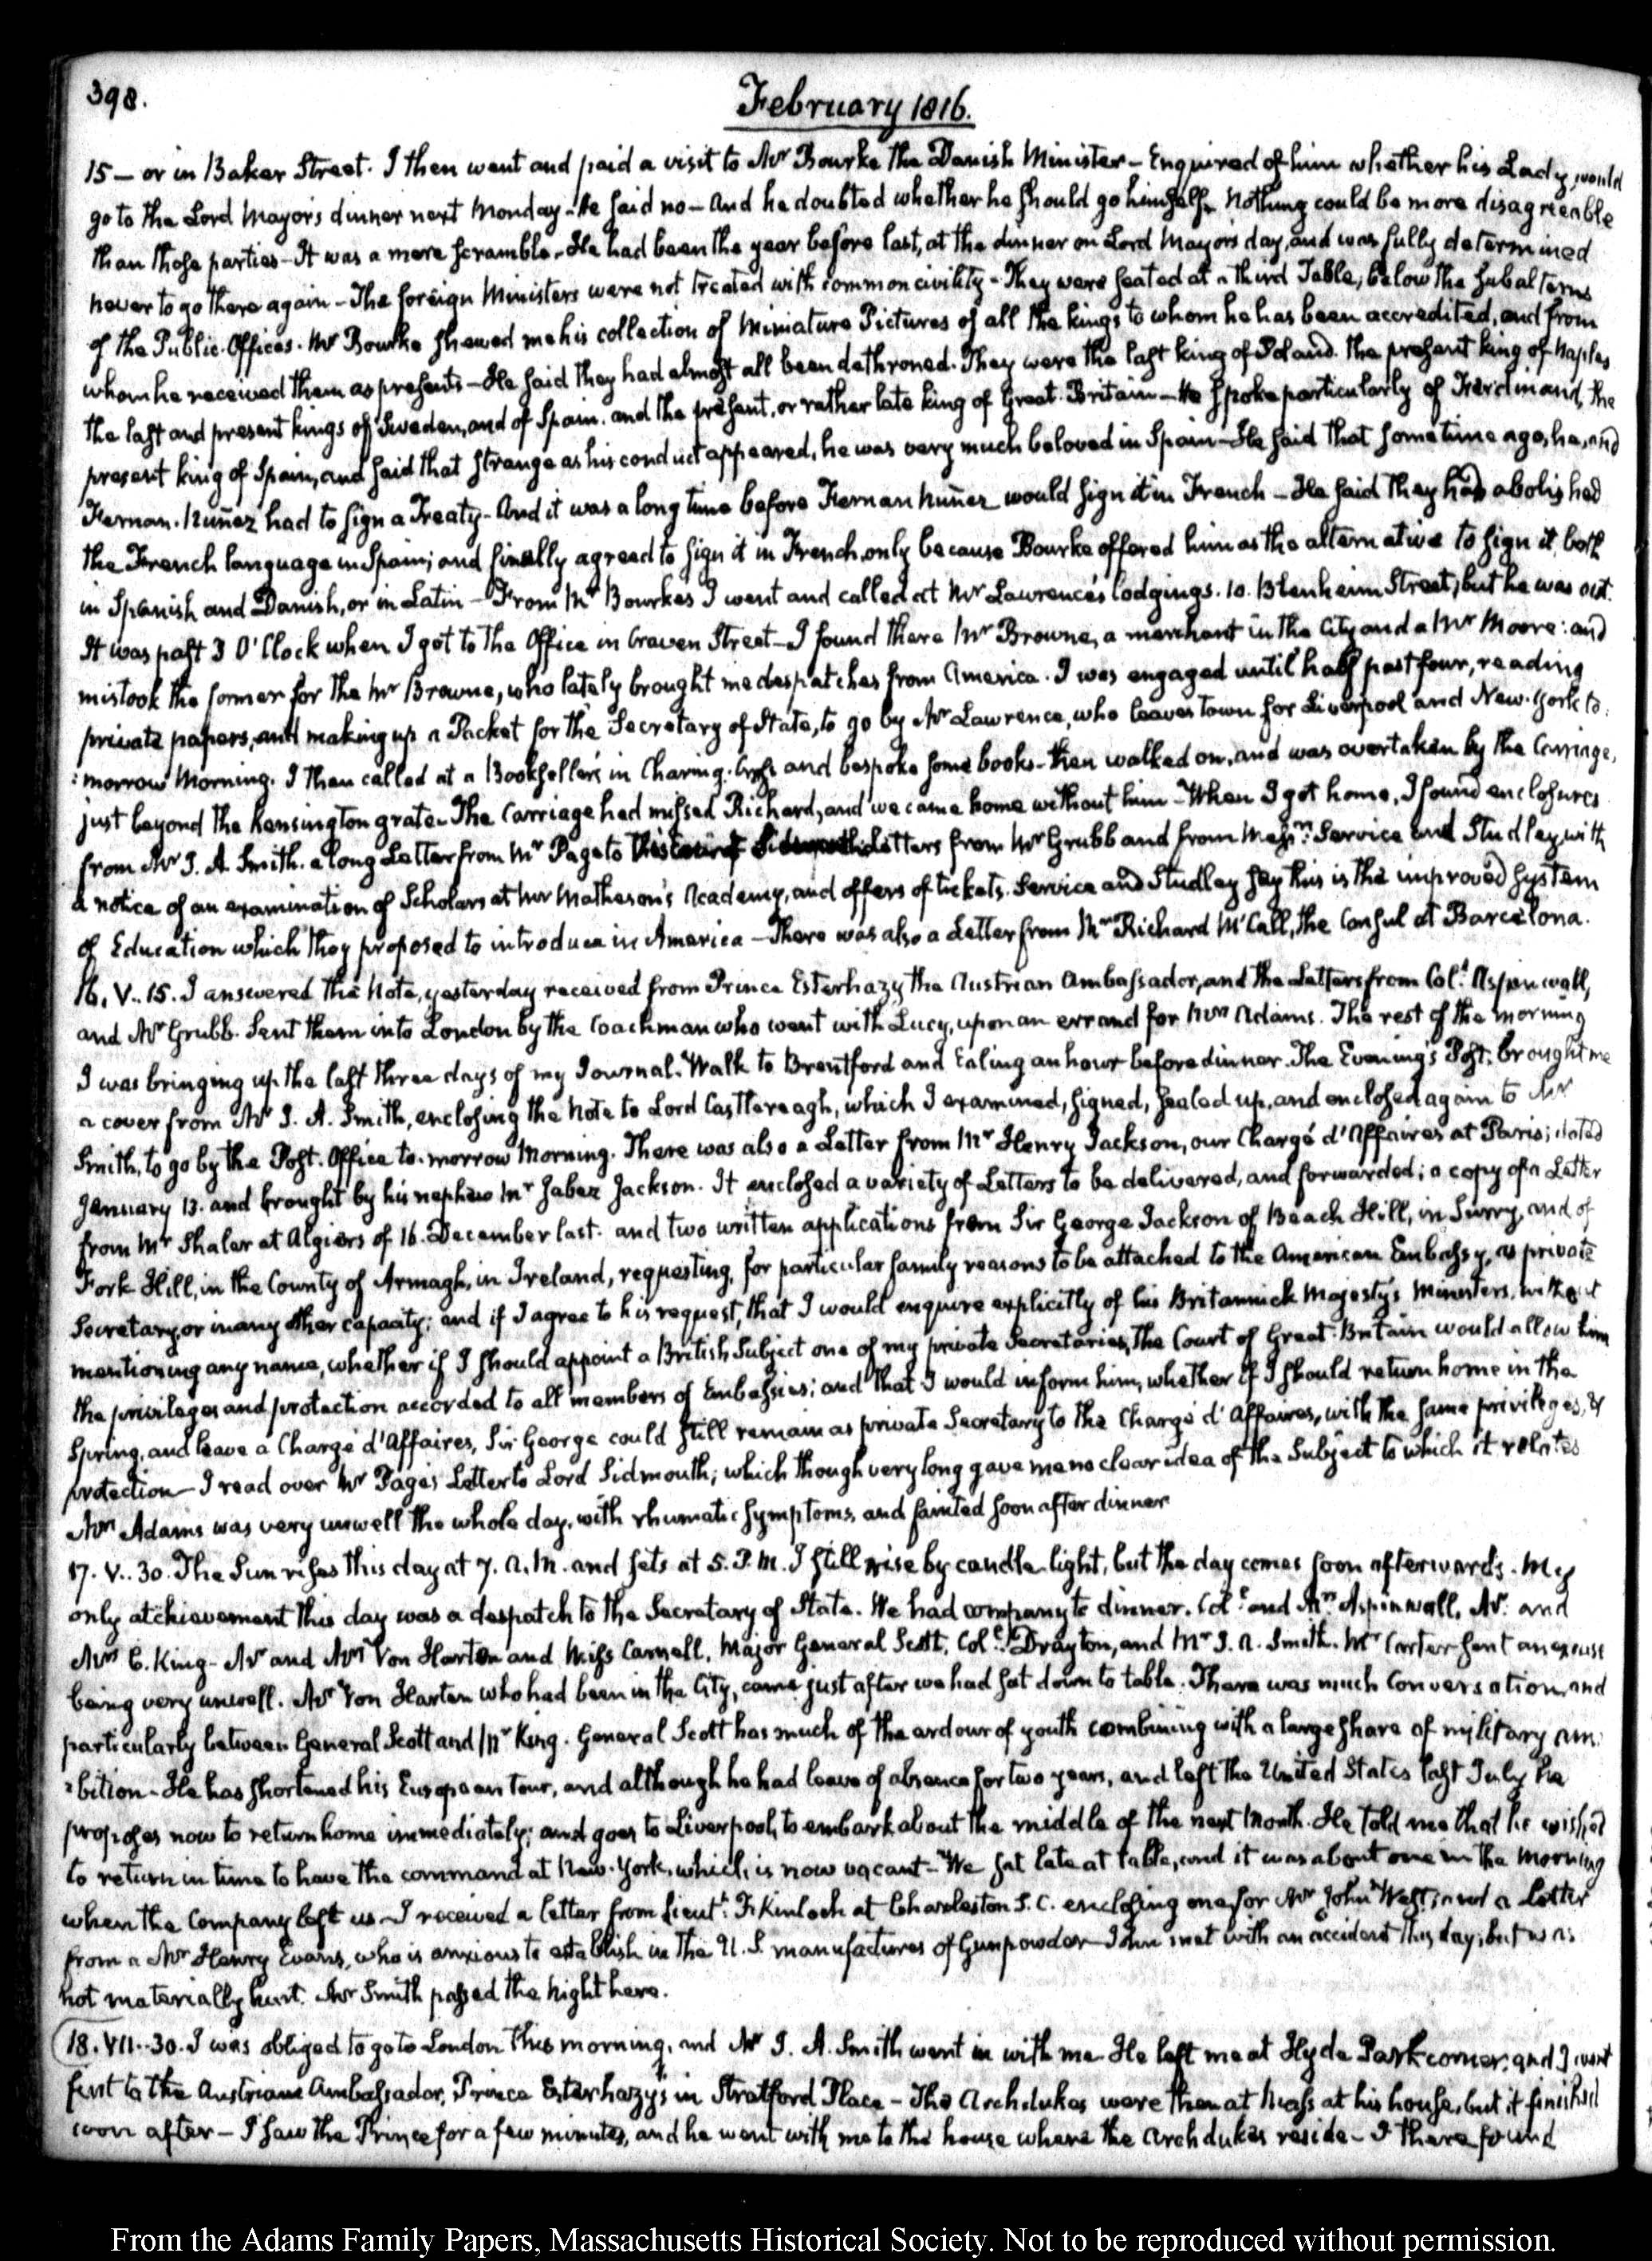 398.
February 1816.
15 — or in Baker Street. I then went and paid a visit to Mr Bourke the Danish Minister — Enquired of him whether his Lady, would
go to the Lord Mayor's dinner next Monday — He said no — And he doubted whether he should go himself. Nothing could be more disagreeable
than those parties — It was a mere scramble. He had been the year before last, at the dinner on Lord Mayors day, and was fully determined
never to go there again — The foreign Ministers were not treated with common civility — They were seated at a third Table, below the subalterns
of the Public Offices. Mr Bourke shewed me his collection of Miniature Pictures of all the kings to whom he has been accredited, and from
whom he received them as presents — He said they had almost all been dethroned. They were the last king of Poland. the present king of Naples
the last and present kings of Sweden, and of Spain. and the present, or rather late king of Great-Britain — He spoke particularly of Ferdinand, the
present king of Spain, and said that strange as his conduct appeared, he was very much beloved in Spain — He said that sometime ago, he, and
Fernan. Nuñez had to sign a Treaty — And it was a long time before Fernan Nuñez would sign it in French — He said they had abolished
the French language in Spain; and finally agreed to sign it in French, only because Bourke offered him as the alternative to sign it both
in Spanish and Danish, or in Latin — From Mr Bourkes I went and called at Mr Lawrence's lodgings. 10. Blenheim Street, but he was out.
It was past 3 O'Clock when I got to the Office in Craven Street — I found there Mr Browne, a merchant in the City and a Mr Moore: and
mistook the former for the Mr Browne, who lately brought me despatches from America. I was engaged until half past four, reading
private papers, and making up a Packet for the Secretary of State, to go by Mr Lawrence, who leaves town for Liverpool and New-York to:
:morrow Morning. I then called at a Bookseller's in Charing-Cross and bespoke some books — then walked on, and was overtaken by the Carriage,
just beyond the Kensington grate — The Carriage had missed Richard, and we came home without him — When I got home, I found enclosures
from Mr J. A. Smith. a long Letter from Mr Page to Letters from Mr Grubb and from Messrs: Service and Studley with
a notice of an examination of Scholars at Mr Matheson's Academy, and offers of tickets. Service and Studley say this is the improved system
of Education which they proposed to introduce in America — There was also a Letter from Mr Richard McCall, the Consul at Barcelona.
16. V.. 15. I answered the Note, yesterday received from Prince Esterhazy the Austrian Ambassador, and the Letters from Coll. Aspinwall,
and Mr Grubb. Sent them into London by the Coachman who went with Lucy, upon an errand for Mrs Adams. The rest of the morning
I was bringing up the last three days of my Journal. Walk to Brentford and Ealing an hour before dinner. The Evening's Post. brought me
a cover from Mr J. A. Smith, enclosing the Note to Lord Castlereagh, which I examined, signed, sealed up, and enclosed again to Mr
Smith, to go by the Post-Office to-morrow Morning. There was also a Letter from Mr Henry Jackson, our Chargé d'Affaires at Paris; dated
January 13. and brought by his nephew Mr Jabez Jackson. It enclosed a variety of Letters to be delivered, and forwarded; a copy of a Letter
from Mr Shaler at Algiers of 16. December last. and two written applications from Sir George Jackson of Beach Hill, in Surry, and of
Fork Hill, in the County of Armagh, in Ireland, requesting, for particular family reasons to be attached to the American Embassy, as private
Secretary, or in any other capacity; and if I agree to his request, that I would enquire explicitly of his Britannick Majesty's Ministers, without
mentioning any name, whether if I should appoint a British Subject one of my private Secretaries, the Court of Great-Britain would allow him
the privileges and protection accorded to all members of Embassies; and that I would inform him, whether if I should return home in the
Spring, and leave a Chargé d'Affaires, Sir George could still remain as private Secretary to the Chargé d'Affaires, with the same privileges, &
protection — I read over Mr Page's Letter to Lord Sidmouth; which though very long gave me no clear idea of the Subject to which it relates
Mrs Adams was very unwell the whole day, with rhumatic symptoms, and fainted soon after dinner
17. V.. 30. The Sun rises this day at 7. A.M. and sets at 5. P.M. I still rise by candle-light, but the day comes soon afterwards. My
only atchievement this day was a despatch to the Secretary of State. We had company to dinner. Coll. and Mrs Aspinwall, Mr. and
Mrs C. King — Mr and Mrs Von Harten and Miss Carnell, Major General Scott, Coll. Drayton, and Mr J. A. Smith. Mr Carter sent an excuse
being very unwell. Mr Von Harten who had been in the City, came just after we had sat down to table. There was much Conversation, and
particularly between General Scott and Mr King. General Scott has much of the ardour of youth combining with a large share of military am:
:bition — He has shortened his European tour, and although he had leave of absence for two years, and left the United States last July he
proposes now to return home immediately; and goes to Liverpool, to embark about the middle of the next Month. He told me that he wished
to return in time to have the command at New-York, which, is now vacant — We sat late at table, and it was about one in the morning
when the Company left us — I received a letter from Lieutt. F. Kinloch at Charleston S.C. enclosing one for Mr John West; and a Letter
from a Mr Henry Evans, who is anxious to establish in the U.S. manufactures of Gunpowder — John met with an accident this day; but was
not materially hurt. Mr Smith passed the night here.
18. VII.. 30. I was obliged to go to London this morning, and Mr J. A. Smith went in with me — He left me at Hyde Park corner; and I went
first to the Austrian Ambassador, Prince Esterhazy's in Stratford Place — The Archdukes were then at Mass at his house, but it finished
soon after — I saw the Prince for a few minutes, and he went with me to the house where the Archdukes reside — I there found
From the Adams Family Papers, Massachusetts Historical Society. Not to be reproduced without permission.